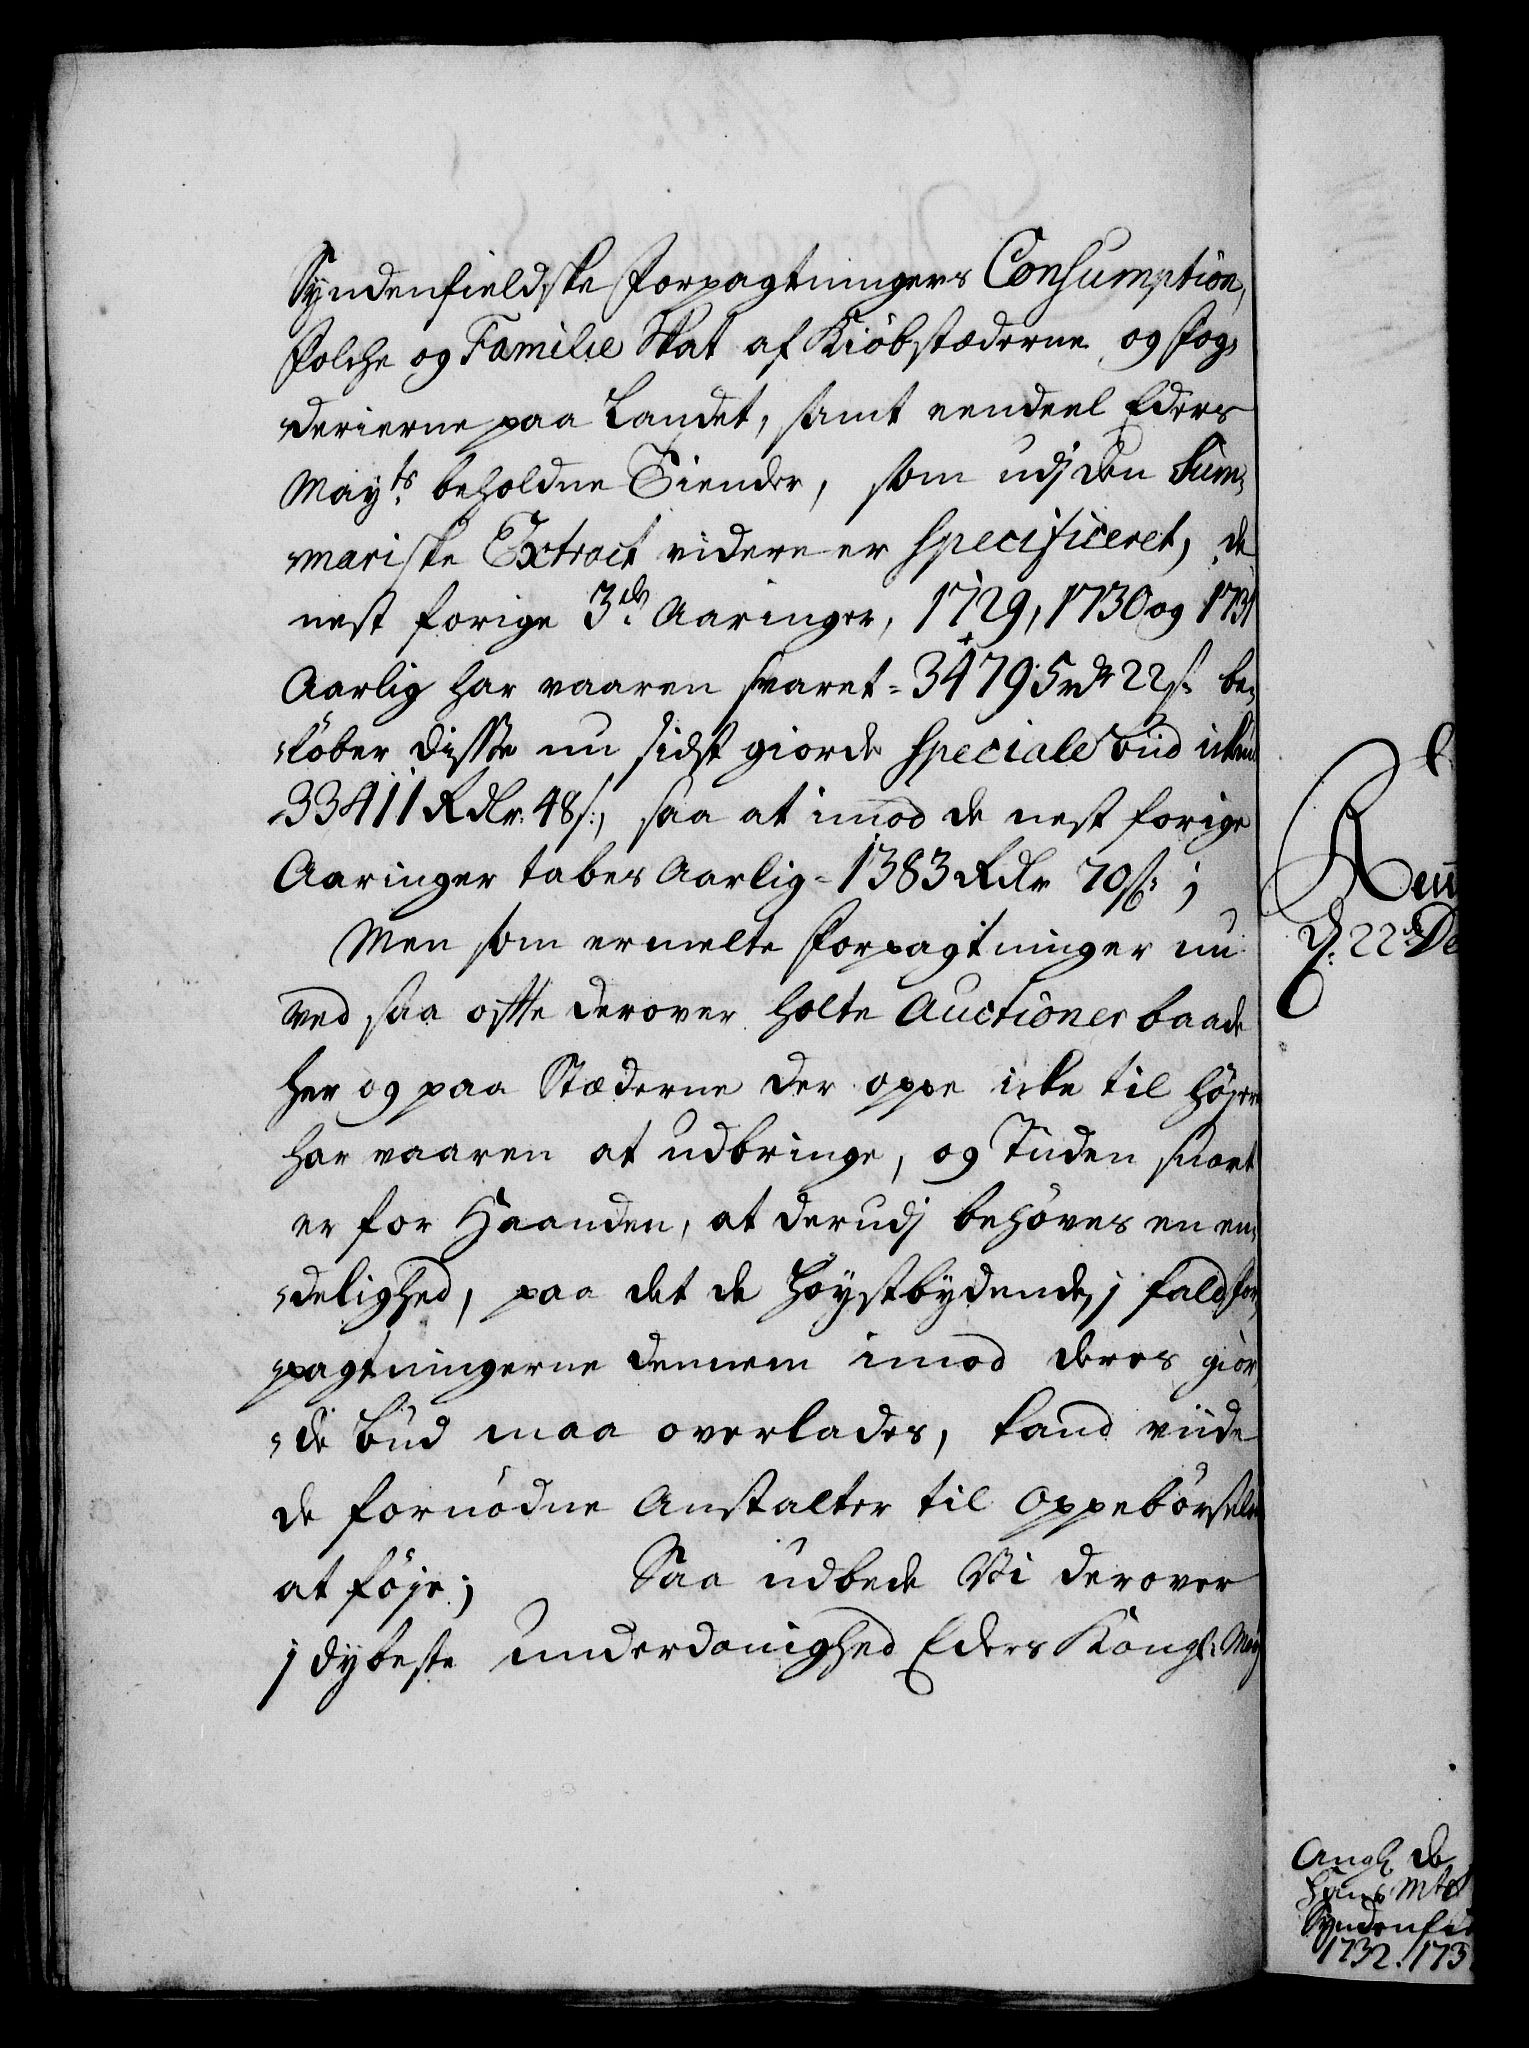 Syndenfieldske Forpagtningers Consumption,
Folche og Familie Skat af Kiöbstæderne og Fog„
derierne paa Landet, samt eendeel Eders
Mayts beholdne Tiender, som udj den Sum„
mariske Extract videre er specificeret, de
nest forige 3de Aaringer, 1729, 1730 og 1731
Aarlig har vaaren svaret = 34795 rdr 22 s: be„
„löber disse nu sidst giorde speciale Bud ickun
33411 Rdlr: 48 s:, saa at imod de nest forige
Aaringer tabes Aarlig = 1383 Rdlr 70 s: ;
Men som ermelte Forpagtninger nu
ved saa offte derover holte Auctioner baade
her og paa Stæderne der oppe icke til höjere
har vaaren at udbringe, og Tiiden snart
er for Haanden, at derudj behöves en en„
„delighed, paa det de Höystbydende, j fald For„
pagtningerne dennem imod deres gior„
„de Bud maa overlades, kand viide
de fornödne Anstalter til Oppebörselen
at föje; Saa udbede Vi derover
j dybeste underdanighed Eders Kongl: May
Reu
d: 22de De
Ang: de
Hans Mts
Syndenfie
1732. 173